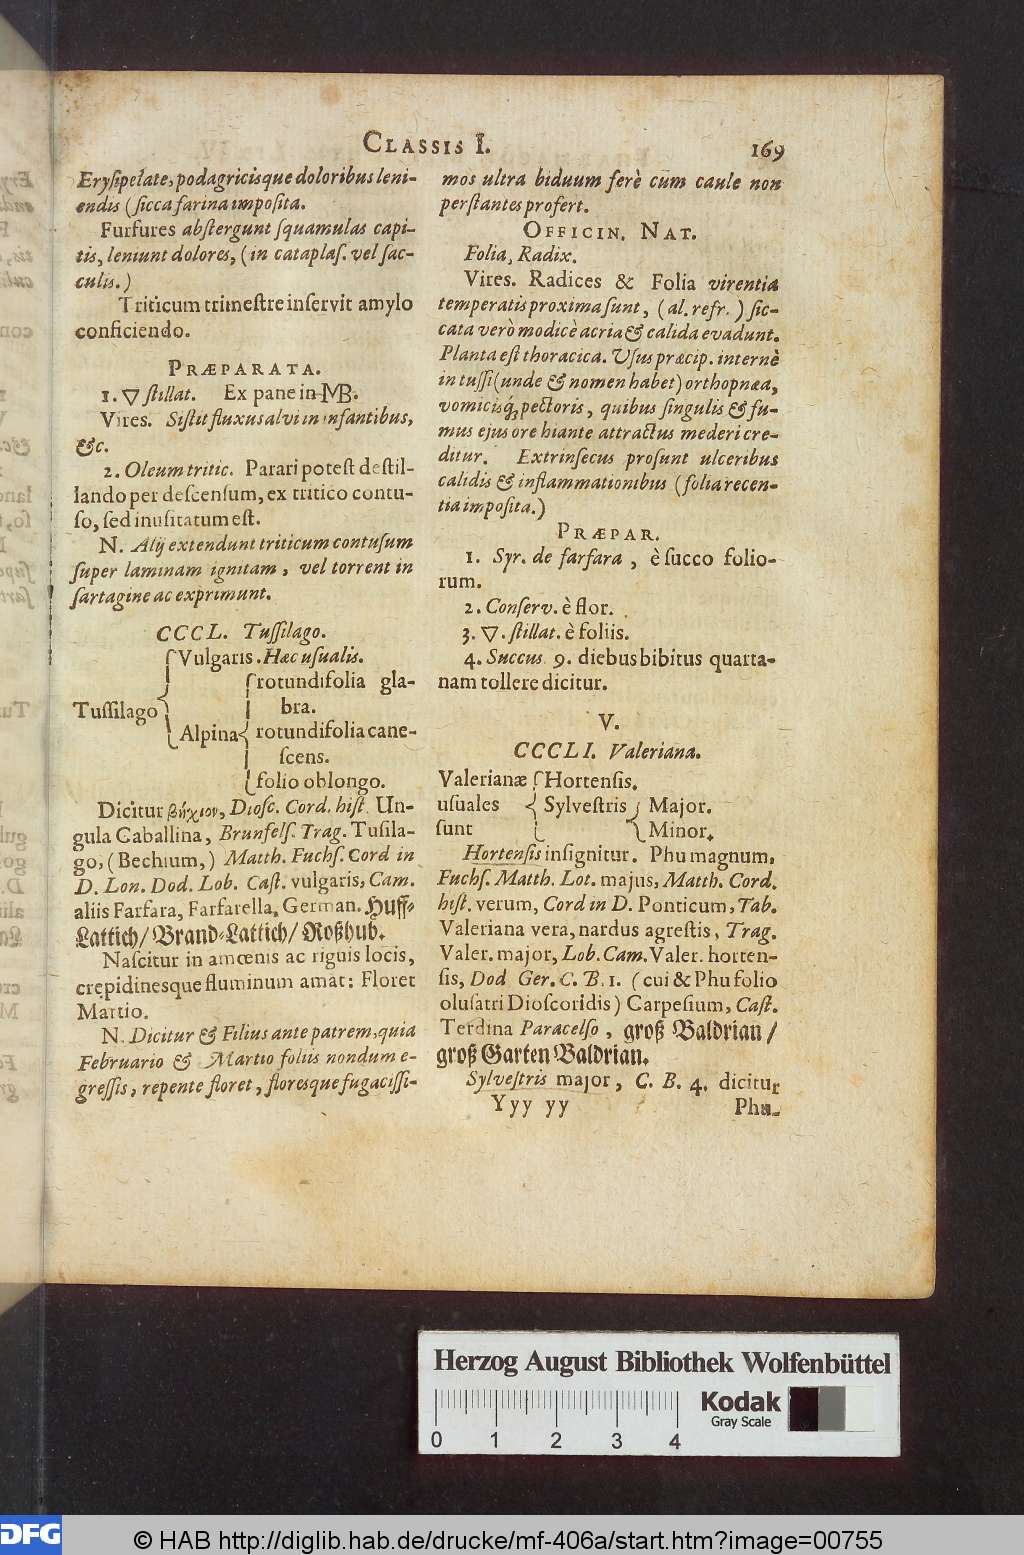 CLASSIS I. 169
Erysipelate, podagricisque doloribus leni-
endis (sicca farina imposita.
Furfures abstergunt squamulas capi-
tis, leniunt dolores, (in cataplas. vel sac-
culis.)
Triticum trimestre inservit amylo
conficiendo.
PRÆPARATA.
1. ▽ stillat. Ex pane in MB.
Vires. Sistit fluxus alvi in infantibus,
&c.
2. Oleum tritic. Parari potest destil-
lando per descensum, ex tritico contu-
so, sed inusitatum est.
N. Alij extendunt triticum contusum
super laminam ignitam, vel torrent in
sartagine ac exprimunt.
CCCL. Tussilago.
Vulgaris. Hæc usualis.
rotundifolia gla-
Tussilago bra.
Alpina rotundifolia cane-
scens.
folio oblongo.
Dicitur βήχιον, Diosc. Cord. hist. Un-
gula Caballina, Brunfels. Trag. Tusila-
go, (Bechium,) Matth. Fuchs. Cord in
D. Lon. Dod. Lob. Cast. vulgaris, Cam.
aliis Farfara, Farfarella, German. Huff-
Lattich/ Brand-Lattich/ Roßhub.
Nascitur in amœnis ac riguis locis,
crepidinesque fluminum amat: Floret
Martio.
N. Dicitur & Filius ante patrem, quia
Februario & Martio foliis nondum e-
gressis, repente floret, floresque fugacissi-
mos ultra biduum ferè cum caule non
perstantes profert.
OFFICIN. NAT.
Folia, Radix.
Vires. Radices & Folia virentia
temperatis proxima sunt, (al. refr.) sic-
cata verò modicè acria & calida evadunt.
Planta est thoracica. Usus præcip. internè
in tussi (unde & nomen habet) orthopnæa,
vomicisq́; pectoris, quibus singulis & fu-
mus ejus ore hiante attractus mederi cre-
ditur. Extrinsecus prosunt ulceribus
calidis & inflammationibus (folia recen-
tia imposita.)
PRÆPAR.
1. Syr. de farfara, è succo folio-
rum.
2. Conserv. è flor.
3. ▽. stillat. è foliis.
4. Succus 9. diebus bibitus quarta-
nam tollere dicitur.
V.
CCCLI. Valeriana.
Valerianæ Hortensis.
usuales Sylvestris Major.
sunt Minor.
Hortensis insignitur. Phu magnum,
Fuchs. Matth. Lot. majus, Matth. Cord.
hist. verum, Cord in D. Ponticum, Tab.
Valeriana vera, nardus agrestis, Trag.
Valer. major, Lob. Cam. Valer. horten-
sis, Dod Ger. C. B. 1. (cui & Phu folio
olusatri Dioscoridis) Carpesium, Cast.
Terdina Paracelso, groß Baldrian/
groß Garten Baldrian.
Sylvestris major, C. B. 4. dicitur
Yyy yy Phu-
Herzog August Bibliothek Wolfenbüttel
Kodak
Gray Scale
0 1 2 3 4
DFG
© HAB http://diglib.hab.de/drucke/mf-406a/start.htm?image=00755